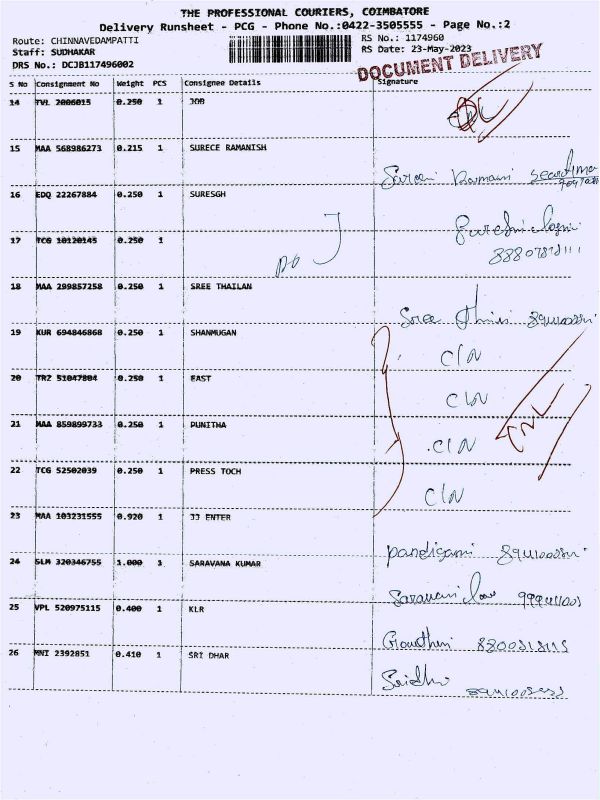 THE PROFESSIONAL COURIERS, COIMBATORE
Delivery Runsheet - PCG - Phone No.:0422-3505555 - Page No.:2
Route: CHINNAVEDAMPATTI
RS No.: 1174960
Staff: SUDHAKAR
RS Date: 23-May-2023
DRS No.: DCJB117496002
DOCUMENT DELIVERY
S No Consignment No Weight PCS Consignee Details Signature
14 TVL 2006015 0.250 1 JOB
15 MAA 568986273 0.215 1 SURECE RAMANISH
16 EDQ 22267884 0.250 1 SURESGH
17 TCG 10120145 0.250 1
18 MAA 299857258 0.250 1 SREE THAILAN
19 KUR 694846868 0.250 1 SHANMUGAN
C/N
20 TRZ 51047804 0.250 1 EAST
C/N
21 MAA 859899733 0.250 1 PUNITHA
C/N
22 TCG 52502039 0.250 1 PRESS TOCH
C/N
23 MAA 103231555 0.920 1 JJ ENTER
24 SLM 320346755 1.000 3 SARAVANA KUMAR
25 VPL 520975115 0.400 1 KLR
26 MNI 2392851 0.410 1 SRI DHAR